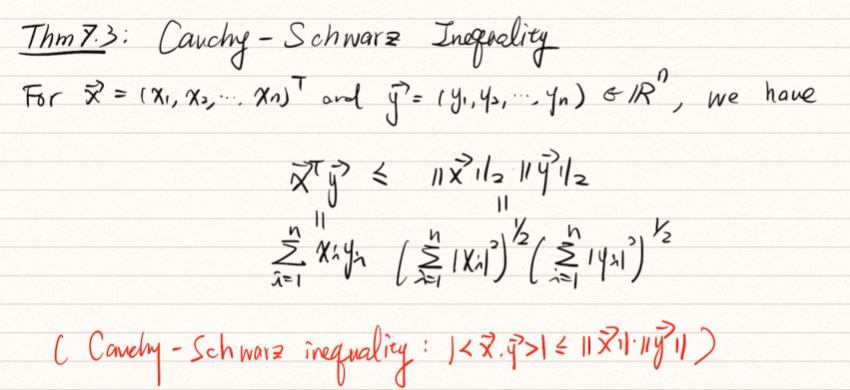 Thm 7.3: Cauchy-Schwarz Inequality
For x⃗ = (x₁, x₂, ... xₙ)ᵀ and y⃗ = (y₁, y₂, ..., yₙ) ∈ ℝⁿ, we have
x⃗ᵀy⃗ ≤ ||x⃗||₂ ||y⃗||₂
|| ||
∑ᵢ₌₁ⁿ xᵢyᵢ (∑ᵢ₌₁ⁿ |xᵢ|²)^½ (∑ᵢ₌₁ⁿ |yᵢ|²)^½
( Cauchy-Schwarz inequality: |<x⃗.y⃗>| ≤ ||x⃗||·||y⃗|| )